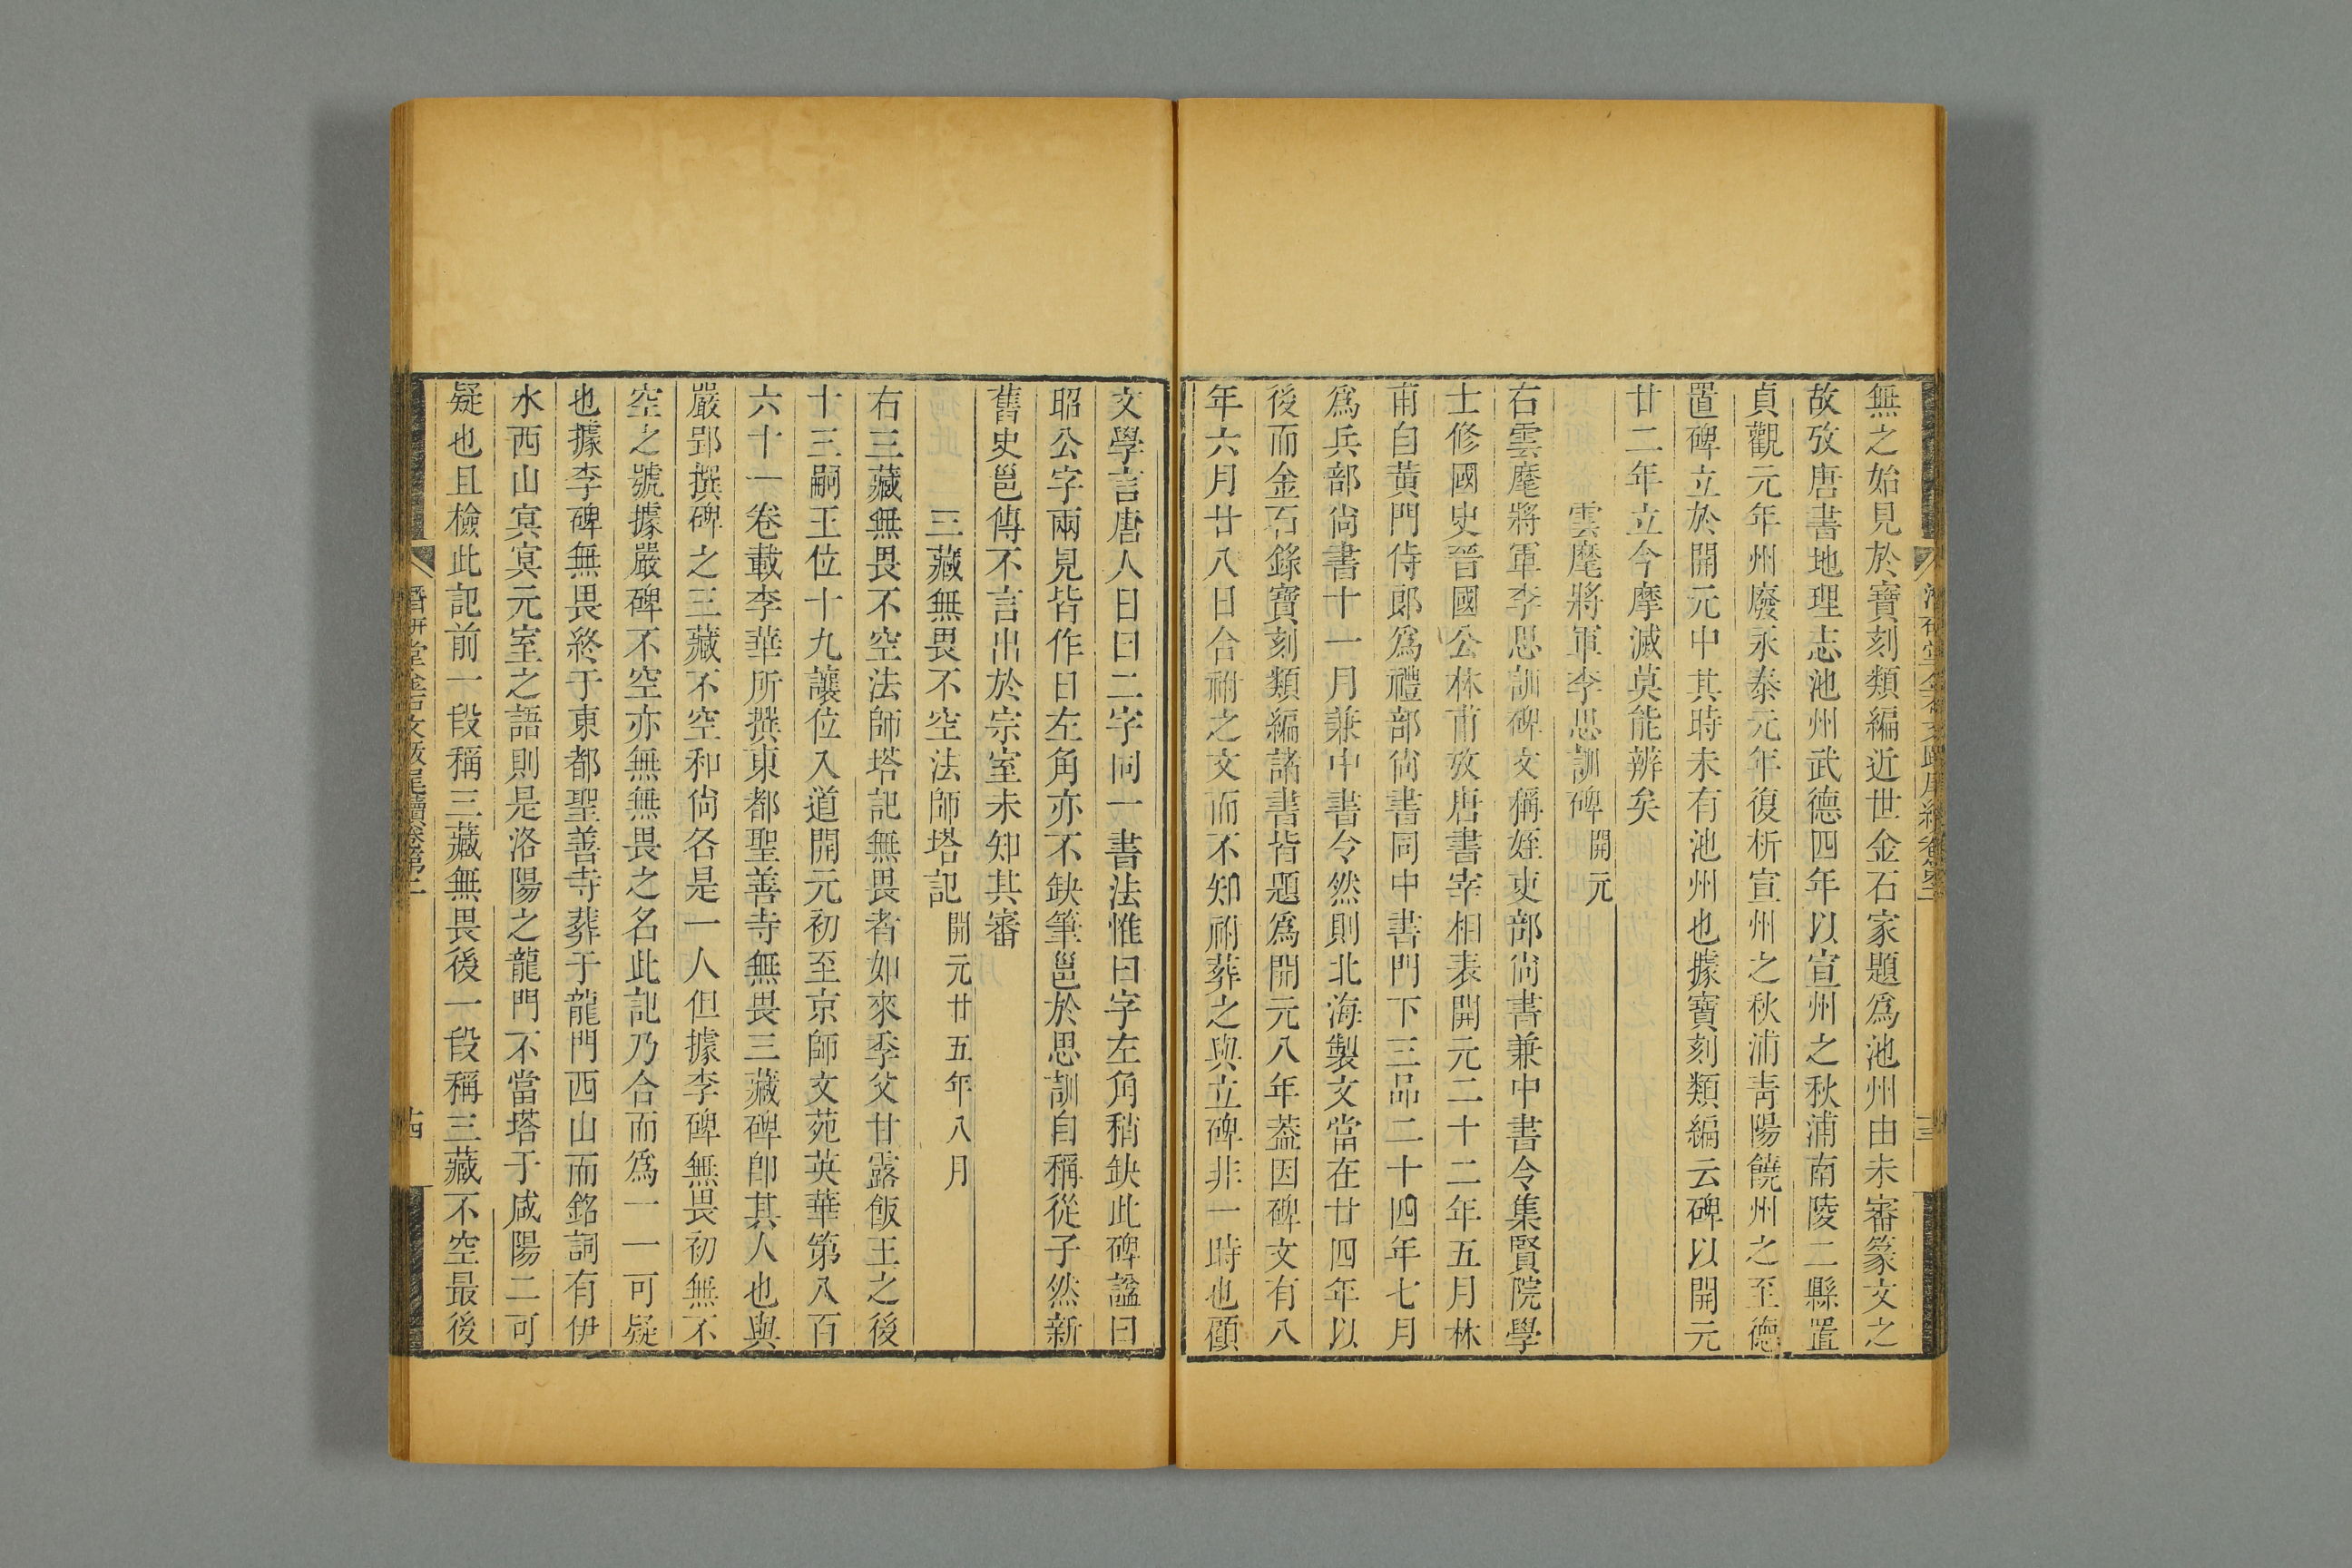 無之始見於寶刻類編近世金石家題爲池州由未審篆文之
故攷唐書地理志池州武德四年以宣州之秋浦南陵二縣置
貞觀元年州廢永泰元年復析宣州之秋浦靑陽饒州之至德
置碑立於開元中其時未有池州也據寶刻類編云碑以開元
廿二年立今摩滅莫能辨矣
雲麾將軍李思訓碑 開元
右雲麾將軍李思訓碑文稱姪吏部尙書兼中書令集賢院學
士修國史晉國公林甫攷唐書宰相表開元二十二年五月林
甫自黃門侍郎爲禮部尙書同中書門下三品二十四年七月
爲兵部尙書十一月兼中書令然則北海製文當在廿四年以
後而金石錄寶刻類編諸書皆題爲開元八年葢因碑文有八
年六月廿八日合祔之文而不知祔葬之與立碑非一時也顧
文學言唐人日曰二字同一書法惟曰字左角稍缺此碑諡曰
昭公字兩見皆作日左角亦不缺筆邕於思訓自稱從子然新
舊史邕傳不言出於宗室未知其審
三藏無畏不空法師塔記 開元廿五年八月
右三藏無畏不空法師塔記無畏者如來季父甘露飯王之後
十三嗣王位十九讓位入道開元初至京師文苑英華第八百
六十一卷載李華所撰東都聖善寺無畏三藏碑卽其人也與
嚴郢撰碑之三藏不空和尙各是一人但據李碑無畏初無不
空之號據嚴碑不空亦無無畏之名此記乃合而爲一一可疑
也據李碑無畏終于東都聖善寺葬于龍門西山而銘詞有伊
水西山寘寘元室之語則是洛陽之龍門不當塔于咸陽二可
疑也且檢此記前一段稱三藏無畏後一段稱三藏不空最後
潛硏堂金石文跋尾續卷第二
十四